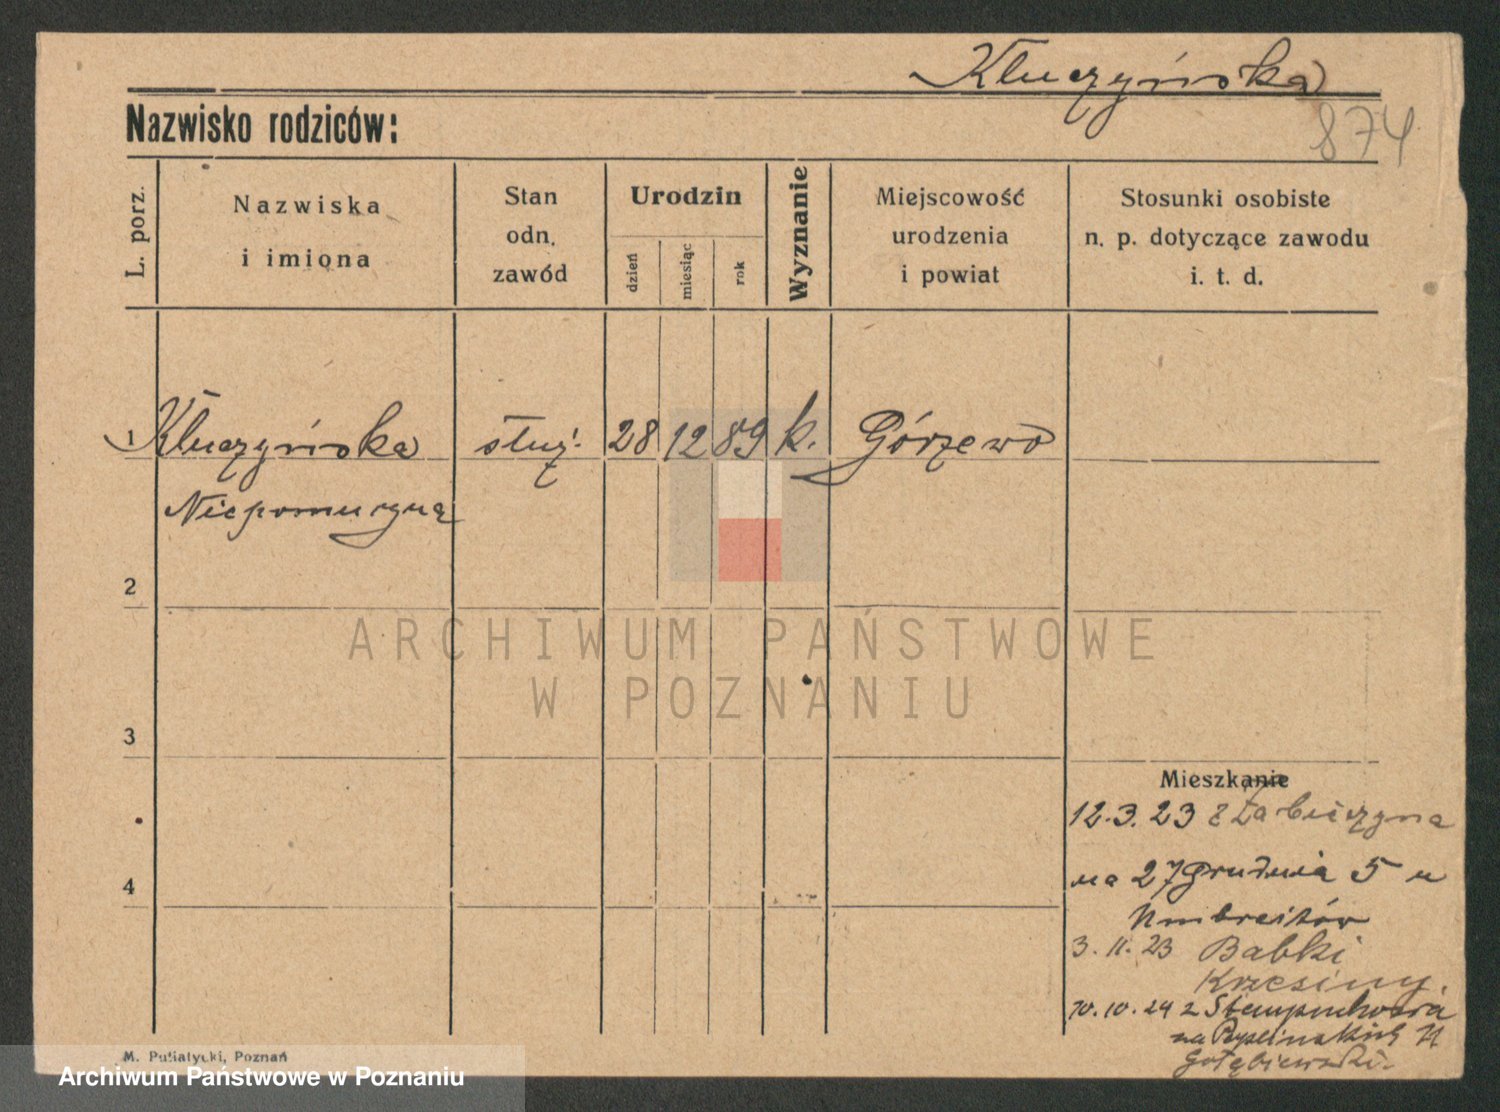 Kluczyńska
874
Nazwisko rodziców:
L. porz.
Nazwiska
i imiona
Stan
odn.
zawód
Urodzin
dzień
miesiąc
rok
Wyznanie
Miejscowość
urodzenia
i powiat
Stosunki osobiste
n. p. dotyczące zawodu
i. t. d.
1 Kluczyńska służ. 28 12 89 k. Górzewo
Niepomucyna
2
ARCHIWUM PAŃSTWOWE
W POZNANIU
3
Mieszkanie
12.3.23 z Żabiczyna
na 27 Grudnia 5 u
Umbreitów
4
3.11.23 Babki
Krzesiny.
10.10.24 z
na
Gołębiewski.
M. Putiatycki, Poznań
Archiwum Państwowe w Poznaniu